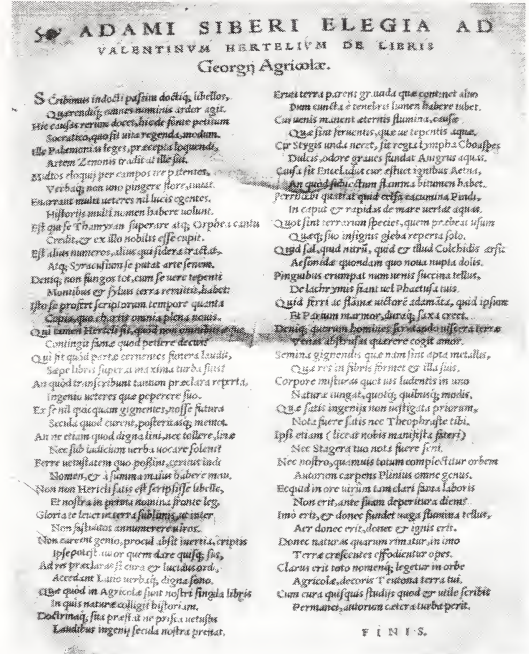 ADAMI SIBERI ELEGIA AD
VALENTINVM HERTELIVM DE LIBRIS
Georgij Agricolæ.
SCribimus indocti passim doctiq; libellos,
Quærendiq; omnes nominis ardor agit.
Hic causas rerum docet, hic de fonte petitum
Socratico, quo sit uita regenda, modum.
Ille Palæmonias leges, præcepta loquendi,
Artem Zenonis tradit at ille sui.
Multos eloquij per campos ire patentes,
Verbaq; non uno pingere flore, iuuat.
Enarrant multi ueteres nil lucis egentes,
Historijs multi nomen habere uolunt.
Est qui se Thamyran superare atq; Orphea cantu
Credit, & ex illo nobilis esse cupit.
Est alius numeros, alius qui sidera tractat,
Atq; Syracusium se putat arte senem.
Deniq; non fungos tot, cum se uere tepenti
Montibus & syluis terra remittit, habet:
Isto se profert scriptorum tempore quanta
Copia, quæ chartis omnia plena nouis.
Qui tamen Herteli fit, quod non omnibus
Contingit famæ quod petiere decus?
Qui fit quod portæ cernentes funera laudis,
Sæpe libris supera maxima turba suis?
An quòd transcribunt tantum præclara reperta,
Ingenio ueteres quæ peperere suo.
Ex se nil quicquam gignentes, nosse futura
Secula quod curent, posteritasq; memor.
An ne etiam quod digna lini, nec tollere, lima
Nec sub iudicium uerba uocare solent?
Ferre uetustatem quo possint, cerius indi
Nomen, & à summa maius habere manu.
Non non Herteli satis est scripsisse libellos,
Et nostra in petris nomina fronte leg.
Gloria te leuet in terra sublimis, ut inter
Non sustratos annumerere uiros.
Non carent genio, procul absit inertia, scriptis
Ipse potest uiuor quem dare quisq; suis,
Ad res præclaras sit cura & lucidus ordo,
Accedant Latio uerbaq; digna sono.
Quæ quod in Agricolæ sunt nostri singula libris
In quis naturæ colligit historiam.
Doctrinaq; sita præstat ne prisca uetustis
Laudibus ingenij secula nostra premat.
Eruit terra parens grauida quæ continet aluo
Dum cuncta è tenebris lumen habere iubet.
Cur uenis manent æternis flumina, causæ
Quæ sint feruentis, quæ ue tepentis aquæ.
Cur Stygis unda necet, sit regia lympha Choaspes
Dulcis, odore graues fundat Anigrus aquas.
Causa sit Enceladus cur æstuet ignibus Aetna,
An quòd subiectum flamma bitumen habet.
Perstibat quatiat quid celsa cacumina Pindi,
In caput & rapidas de mare uertat aquas.
Quot sint terrarum species, quem præbeat usum
Quæq; suo insignis gleba reperta solo.
Quid sal, quid nitrū, quid & illud Colchidis æstus
Aesonidæ quondam quo noua nupta dolis.
Pinguibus erumpat num uenis succina tellus,
De lachrymis fiant uel Phaetusa tuis.
Quid ferri ac flauæ uictorē adamāta, quid ipsum
Et Parium marmor, duraq; saxa creet.
Deniq; quarum homines scrutando uiscera terræ
Venas abstrusas quærere cogit amor.
Semina gignendis quæ nam sint apta metallis,
Quæ res in fibris formet & illa suis.
Corpore misturas quot uis ludentis in uno
Natura iungat, quotq; quibusq; modis.
Quæ satis ingenijs non uestigata priorum,
Nota fuere satis nec Theophraste tibi.
Ipsi etiam (liceat nobis manifesta fateri)
Nec Stagera tuo nota fuere seni.
Nec nostro, quamuis totum complectitur orbem
Autorum carpens Plinius omne genus.
Ecquid in ore uirûm tam clari fama laboris
Non erit, anne suum deperitura diem?
Imo erit, & donec fundet uaga flumina tellus,
Aer donec erit, donec & ignis erit.
Donec naturas quarum rimatur, in imo
Terræ crescentes effodientur opes.
Clarus erit toto nomenq; legetur in orbe
Agricolæ, decoris Teutona terra tui.
Cum cura quisquis studijs quod & utile scribit
Permanet, autorum cætera turba perit.
FINIS.